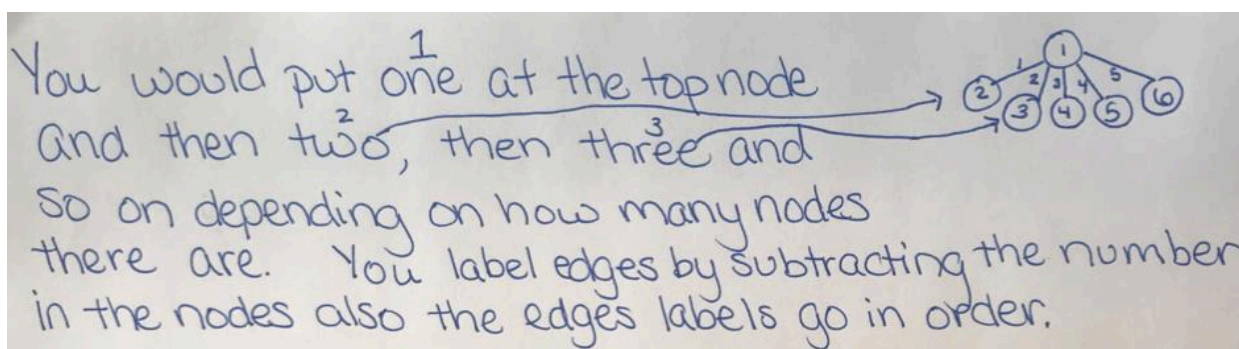 1
You would put one at the top node
2 3
and then two, then three and
so on depending on how many nodes
there are. You label edges by subtracting the number
in the nodes also the edges labels go in order.
1
1 2 3 4 5
2 3 4 5 6